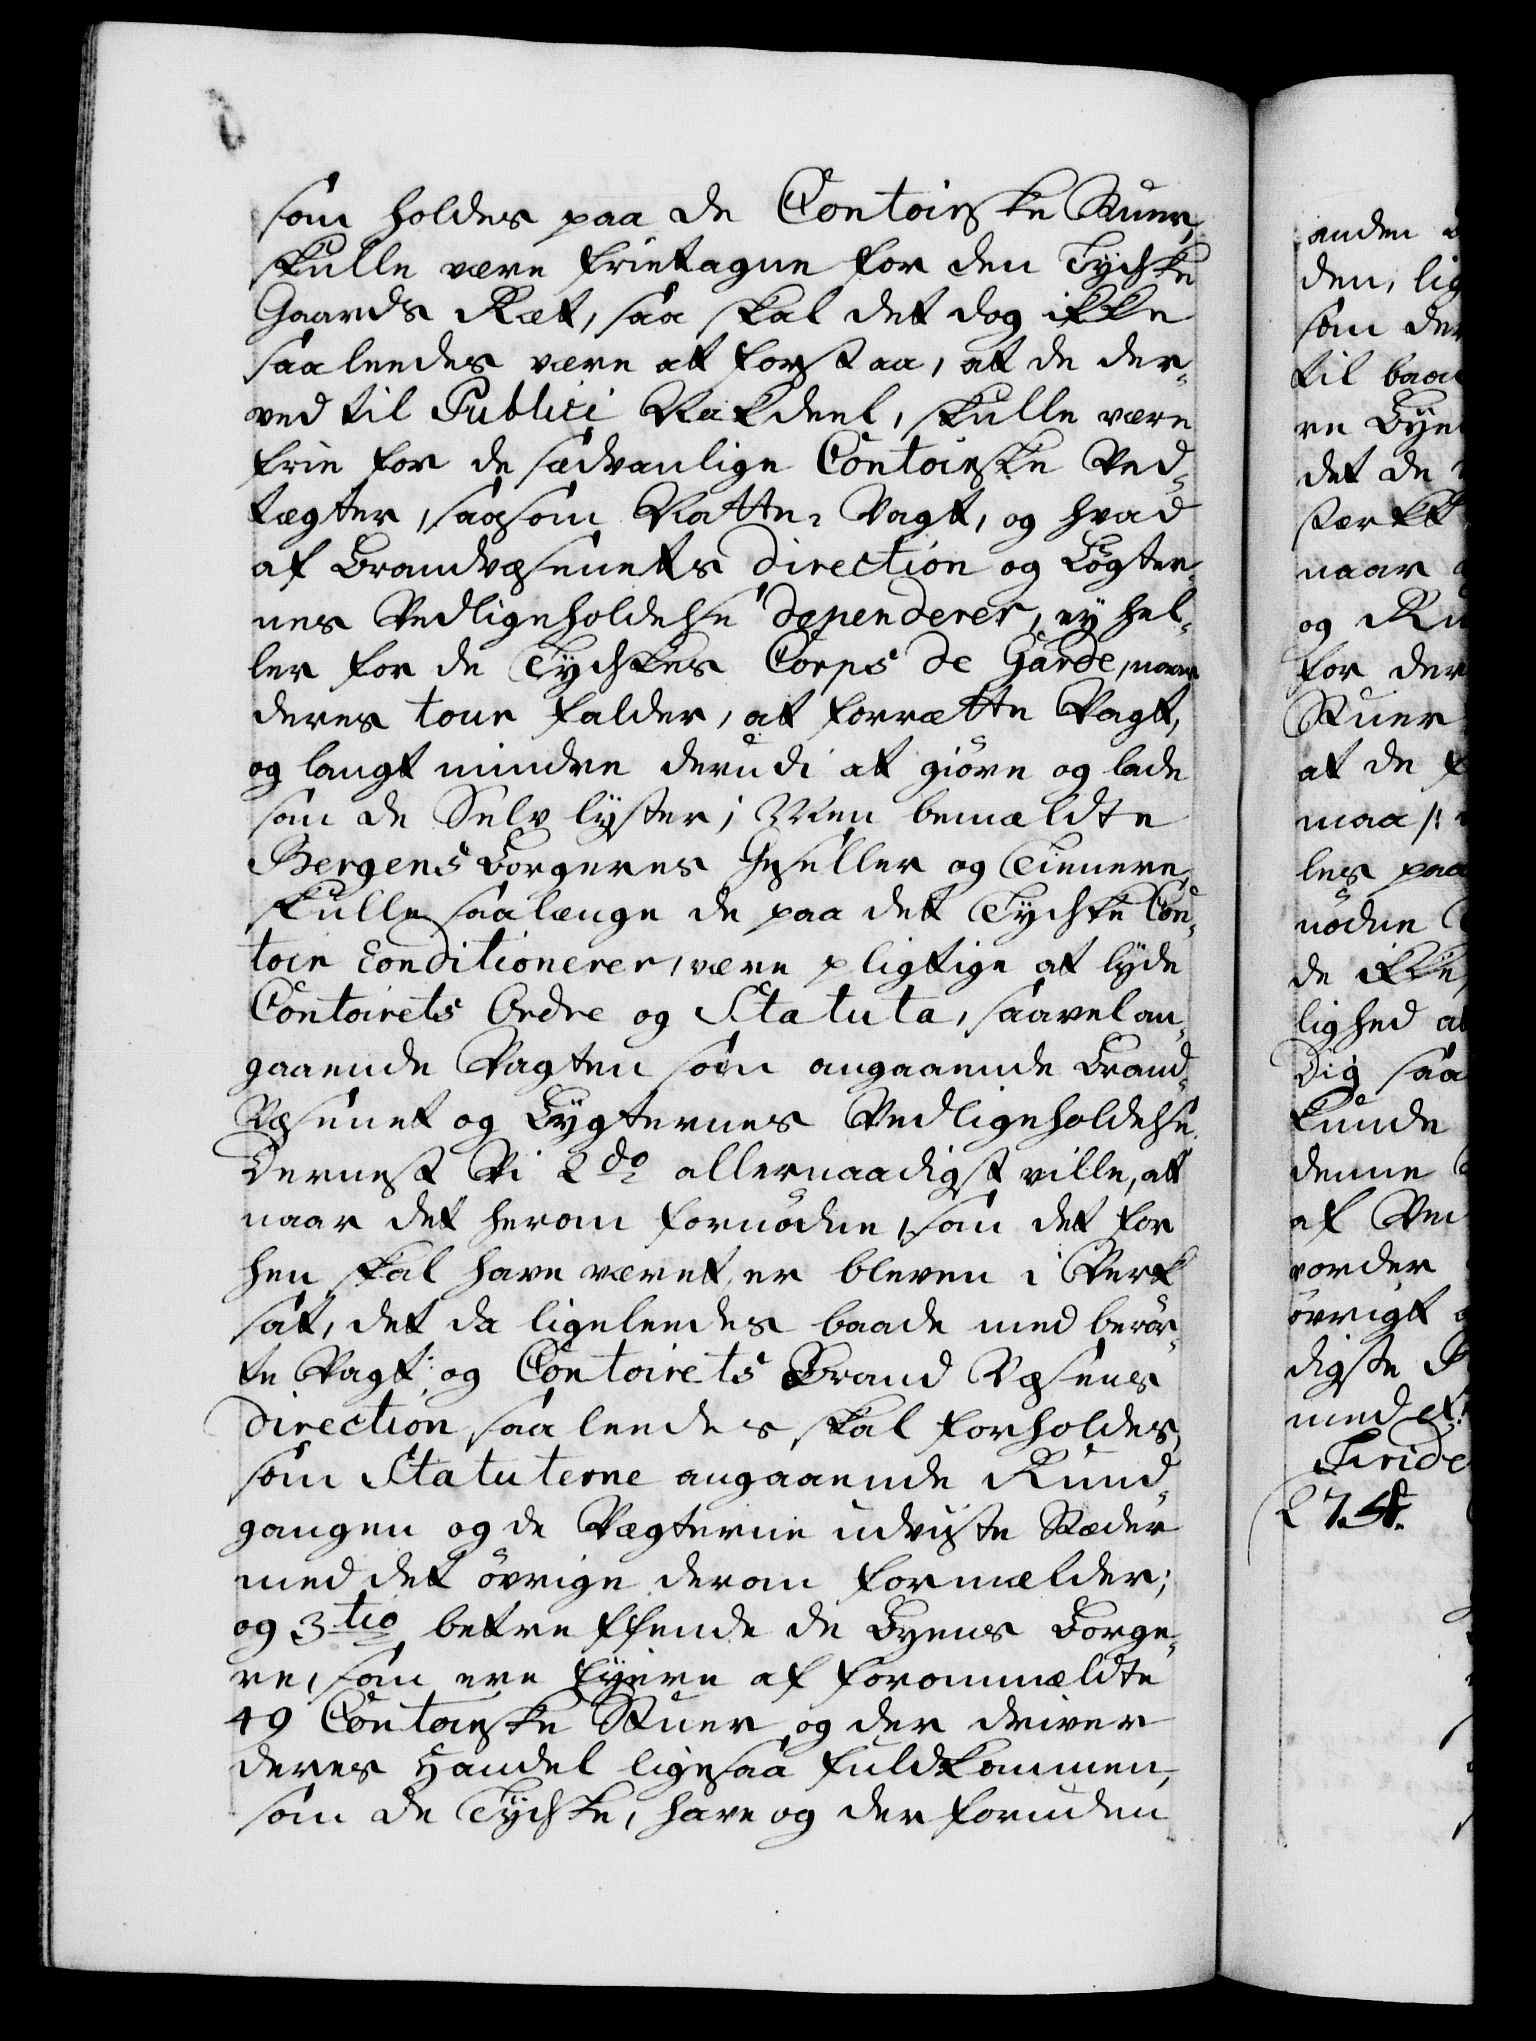 som holdes paa de Contoirske Stuer,
skulle være frietagne for den Tydske
Gaards Ræt, saa skal det dog ikke
saaleedes være at forstaa, at de der-
ved til Publici Nakdeel, skulle være
frie for de sædvanlige Contoirske Ved-
tægter, saasom Natte-Vagt, og hvad
af Brandvæsenets direction og Løgter-
nes Vedligeholdelse dependerer, ey hel-
ler for de Tydskes Corps de Garde, naar
deres tour falder, at forrætte Vagt,
og langt mindre derudi at giøre og lade
som de Selv lyster; Men bemældte
Bergens Borgeres Geseller og Tienere,
skulle saalænge de paa det Tydske Con-
toir Conditionerer, være pligtige at lyde
Contoirets Ordre og Statuta, saavel an-
gaaende Vagten som angaaende Brand-
Væsenet og Lygternes Vedligeholdelse.
Dernest Vi 2do allernaadigst ville, at
naar det herom fornødne, som det for
hen skal have været, er bleven i Verk
sat, det da ligeleedes baade med berør-
te Vagt: og Contoirets Brand Væsens
direction saaleedes skal forholdes,
som Statuterne angaaende Rund-
gangen og de Vægterne udviste Stæder
med det øvrige derom formælder;
og 3tio betreffende de Byens Borge-
re, som ere Eyere af forommældte
49 Contoirske Stuer og der driver
deres Handel ligesaa fuldkommen,
som de Tydske, have og der foruden
anden
den, lig
som der
til baa
re Bye
det de
stærkt
naar
og Ru
for der
Stuer
at de
maa /:
les paa
nødne
de ikke
lighed
Dig saa
kunde
denne
af Ved
vorder
øvrigt
digste
med
Fride
27. St.